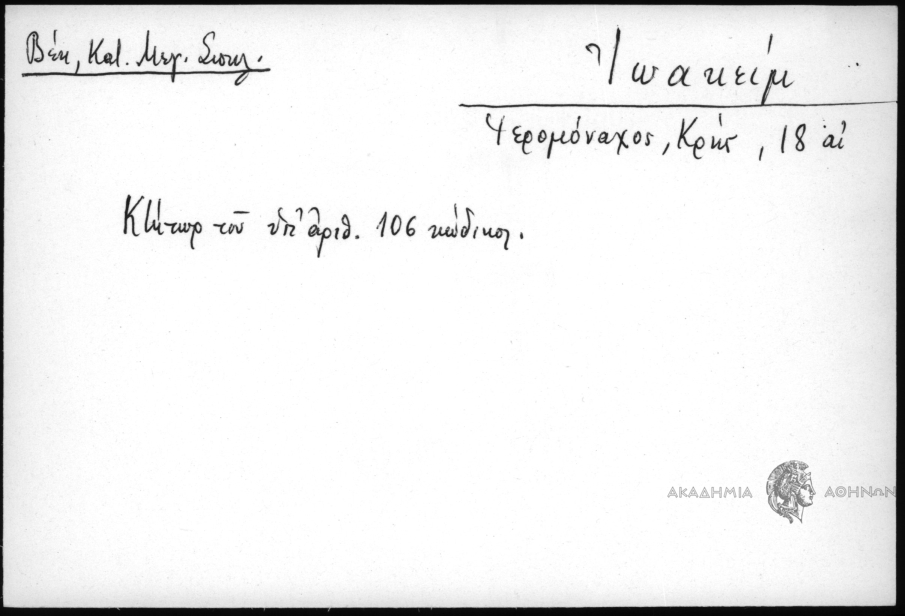 Βέη, Κατ. Μεγ. Σπηλ.
Ἰωακείμ
Ἱερομόναχος, Κρής, 18 αἰ
Κτήτωρ τοῦ ὑπ' ἀριθ. 106 κώδικος.
ΑΚΑΔΗΜΙΑ ΑΘΗΝΩΝ